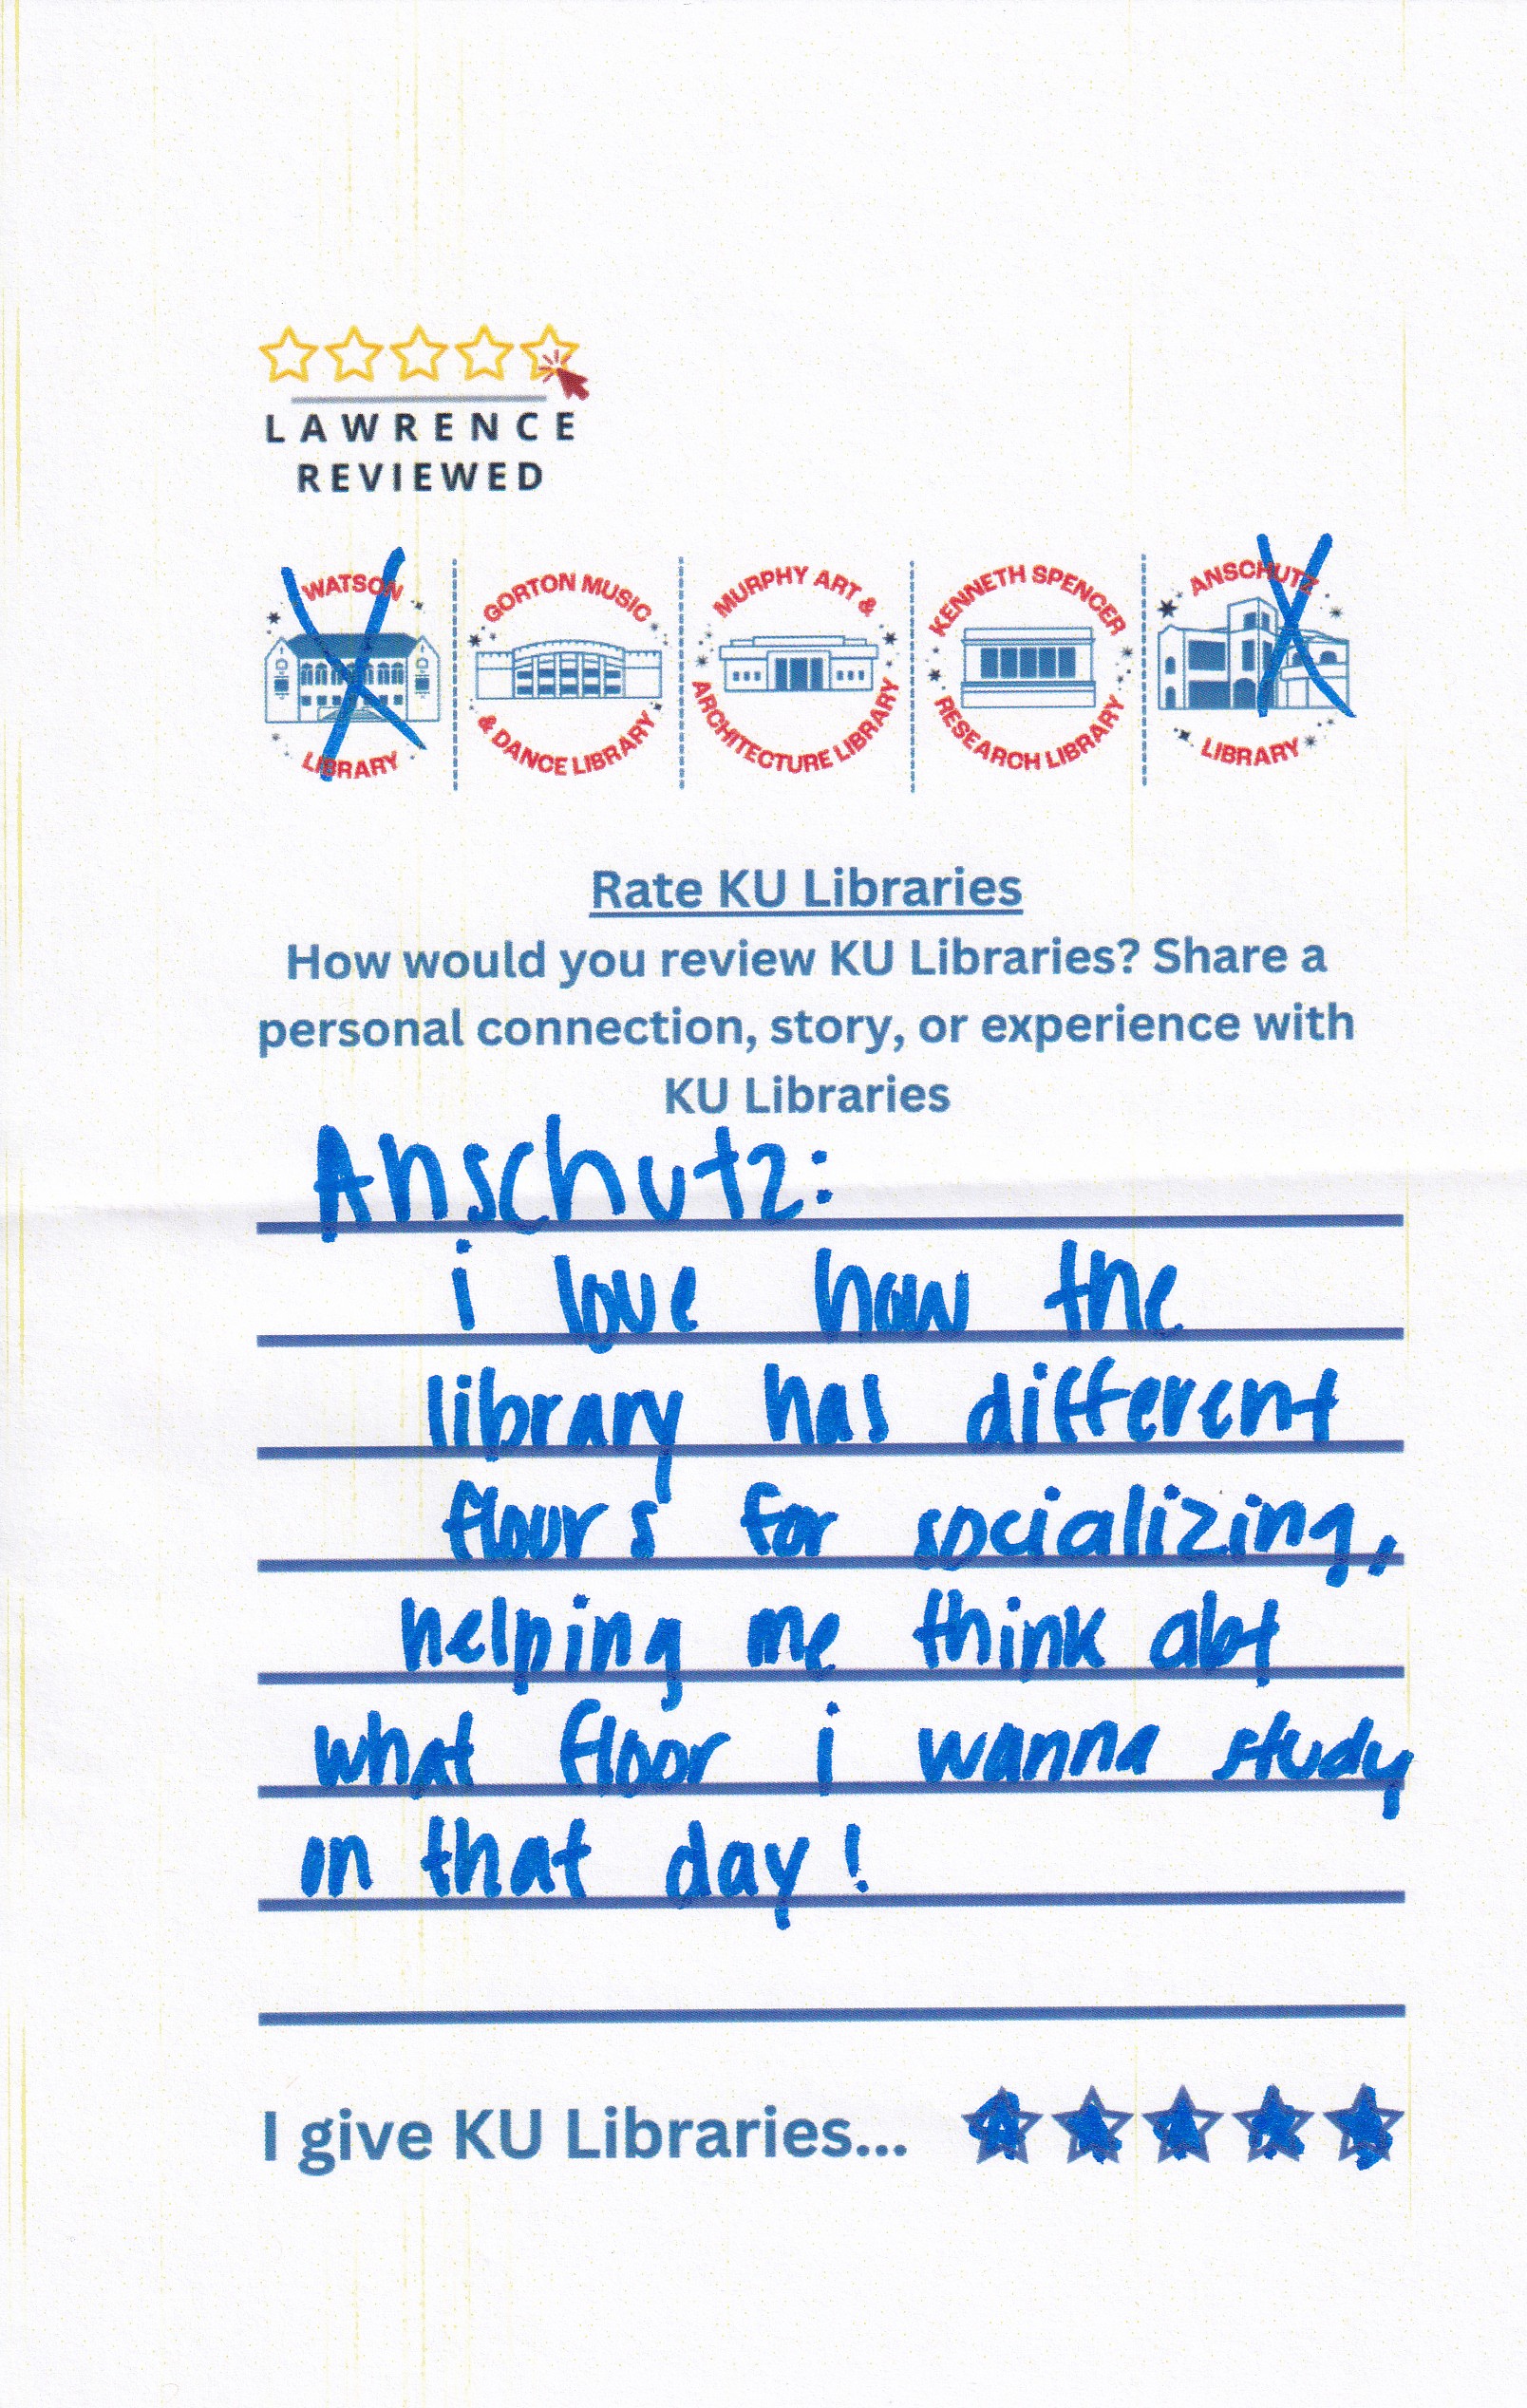 LAWRENCE
REVIEWED
WATSON
LIBRARY
GORTON MUSIC
& DANCE LIBRARY
MURPHY ART &
ARCHITECTURE LIBRARY
KENNETH SPENCER
RESEARCH LIBRARY
ANSCHUTZ
LIBRARY
Rate KU Libraries
How would you review KU Libraries? Share a
personal connection, story, or experience with
KU Libraries
Anschutz:
i love how the
library has different
flours for socializing,
helping me think abt
what floor i wanna study
on that day!
I give KU Libraries...